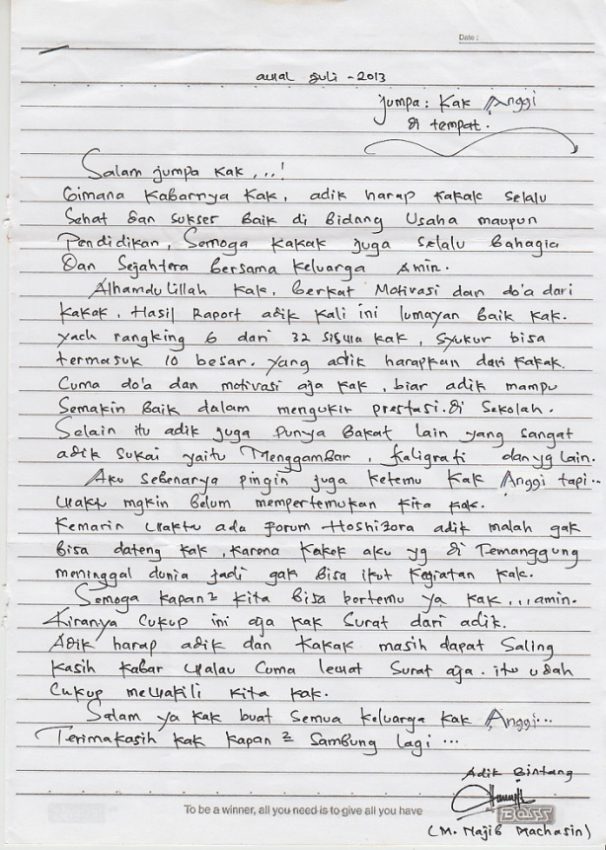 Date :
awal Juli - 2013
Jumpa : Kak Anggi
di tempat.
Salam jumpa kak, ...!
Gimana kabarnya kak, adik harap kakak selalu
Sehat dan sukses Baik di Bidang Usaha maupun
Pendidikan, Semoga kakak juga selalu Bahagia
Dan Sejahtera bersama keluarga Amin.
Alhamdulillah kak, berkat Motivasi dan do'a dari
kakak, Hasil Raport adik kali ini lumayan Baik kak.
yach rangking 6 dari 32 siswa kak, syukur bisa
termasuk 10 besar. yang adik harapkan dari kakak.
Cuma do'a dan motivasi aja kak, biar adik mampu
Semakin Baik dalam mengukir prestasi di Sekolah.
Selain itu adik juga Punya Bakat lain yang sangat
adik sukai yaitu Menggambar, kaligrafi dan yg lain.
Aku Sebenarya pingin juga ketemu kak Anggi tapi..
waktu mgkin Belum mempertemukan kita kak.
Kemarin waktu ada forum Hoshizora adik malah gak
Bisa dateng kak, karena kakek aku yg di Temanggung
meninggal dunia jadi gak Bisa ikut kegiatan kak.
Semoga kapan2 kita Bisa bertemu ya kak ... amin.
Kiranya Cukup ini aja kak Surat dari adik.
Adik harap adik dan kakak masih dapat Saling
kasih kabar walau Cuma lewat Surat aja. itu udah
Cukup mewakili kita kak.
Salam ya kak buat Semua keluarga kak Anggi...
Terimakasih kak kapan2 Sambung lagi ...
Adik Bintang
To be a winner, all you need is to give all you have
BOSS
(M. Najib Machasin)